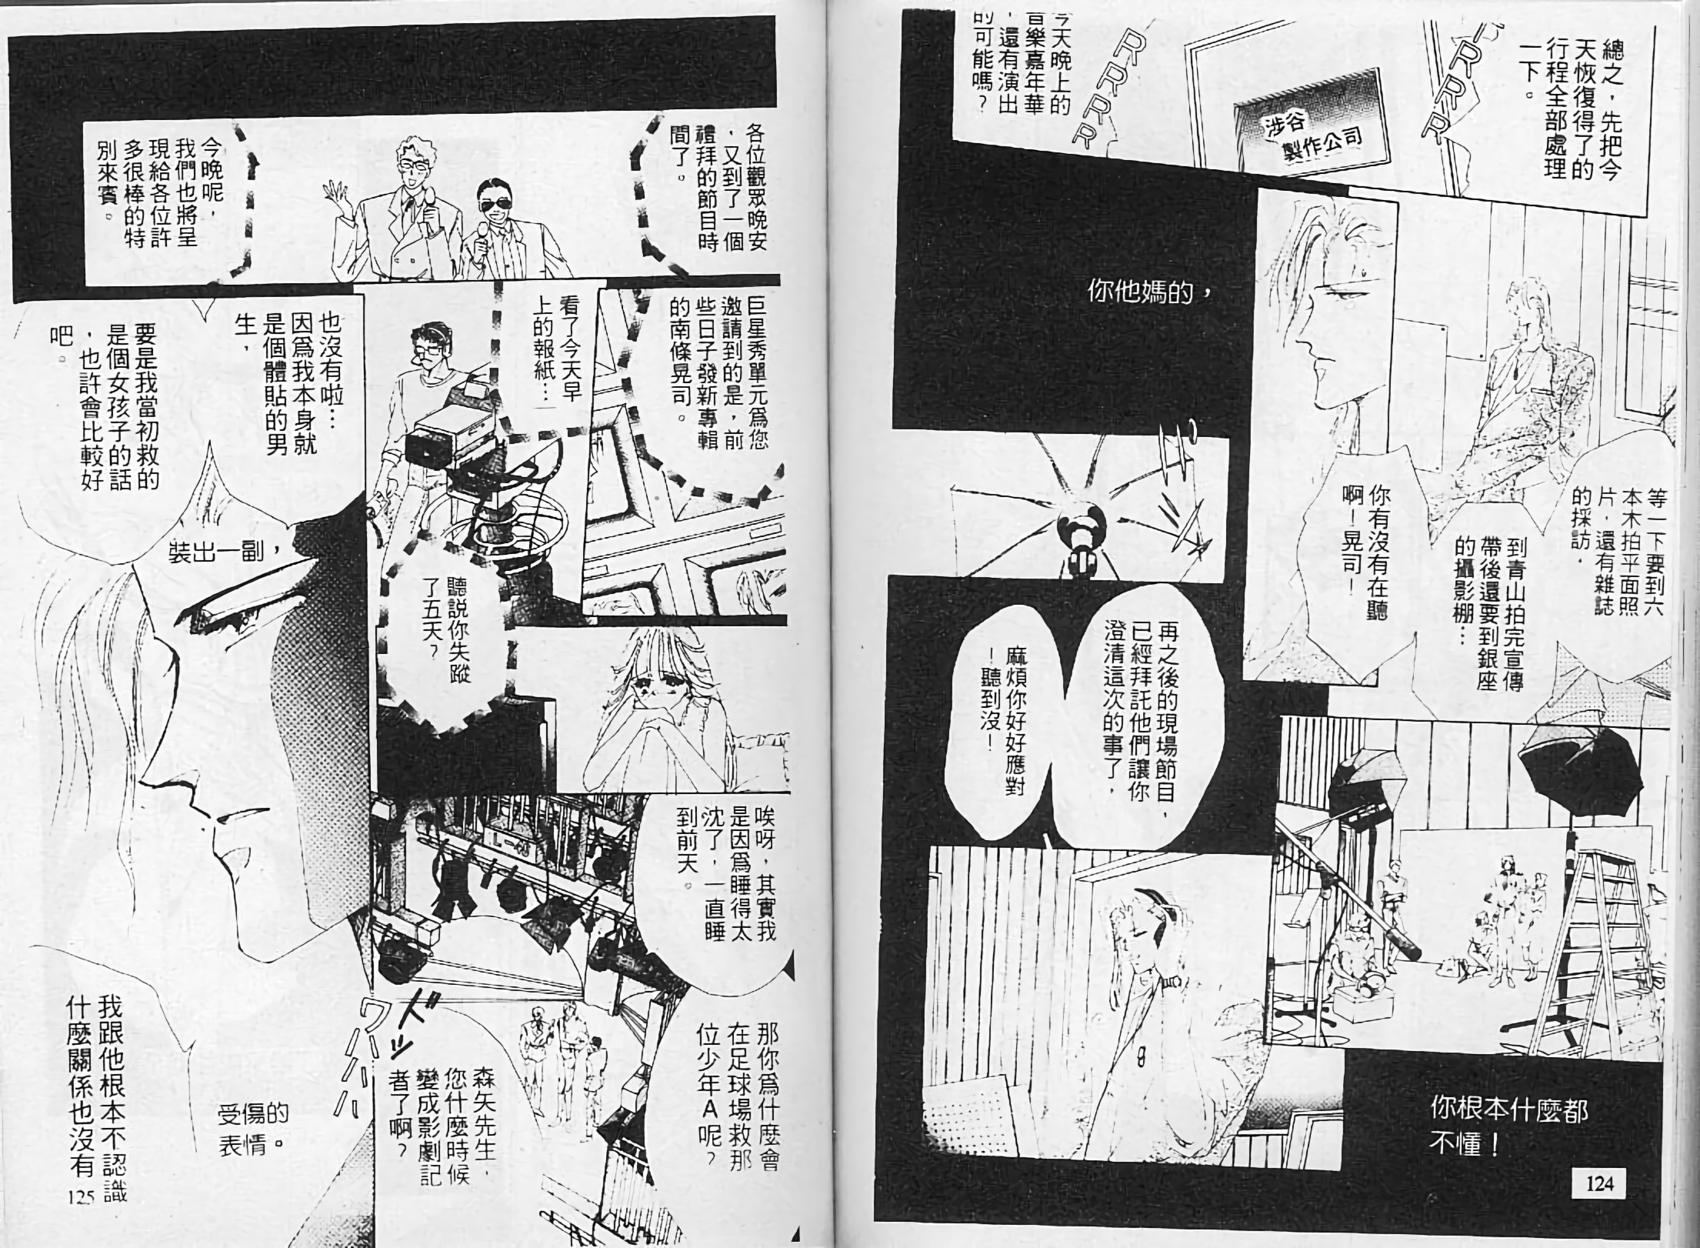 總之，先把今
天恢復得了的
行程全部處理
一下。
RRRR
RRRR
涉谷
製作公司
今天晚上的
音樂嘉年華
，還有演出
的可能嗎？
等一下要到六
本木拍平面照
片，還有雜誌
的採訪．
到青山拍完宣傳
帶後還要到銀座
的攝影棚…
你有沒有在聽
啊！晃司！
你他媽的，
再之後的現場節目，
已經拜託他們讓你
澄清這次的事了，
麻煩你好好應對
！聽到沒！
你根本什麼都
不懂！
124
各位觀眾晚安
，又到了一個
禮拜的節目時
間了。
今晚呢，
我們也將呈
現給各位許
多很棒的特
別來賓。
巨星秀單元為您
邀請到的是，前
些日子發新專輯
的南條晃司。
看了今天早
上的報紙…
聽說你失蹤
了五天？
唉呀，其實我
是因為睡得太
沈了，一直睡
到前天。
那你為什麼會
在足球場救那
位少年A呢？
森矢先生，
您什麼時候
變成影劇記
者了啊？
ドッ
ワハハハ
也沒有啦…
因為我本身就
是個體貼的男
生，
要是我當初救的
是個女孩子的話
，也許會比較好
吧。
裝出一副，
受傷的
表情。
我跟他根本不認識
什麼關係也沒有
125